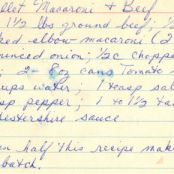 llet Macaroni & Beef
1 1/2 lbs ground beef; 1/2
ked elbow-macaroni (2
minced onion; 1/2 c chopp
; 2 - 8 oz cans Tomato
ups water; 1 teasp sal
sp pepper; 1 to 1 1/2 ta
cestershire sauce
en half this recipe mak
batch.